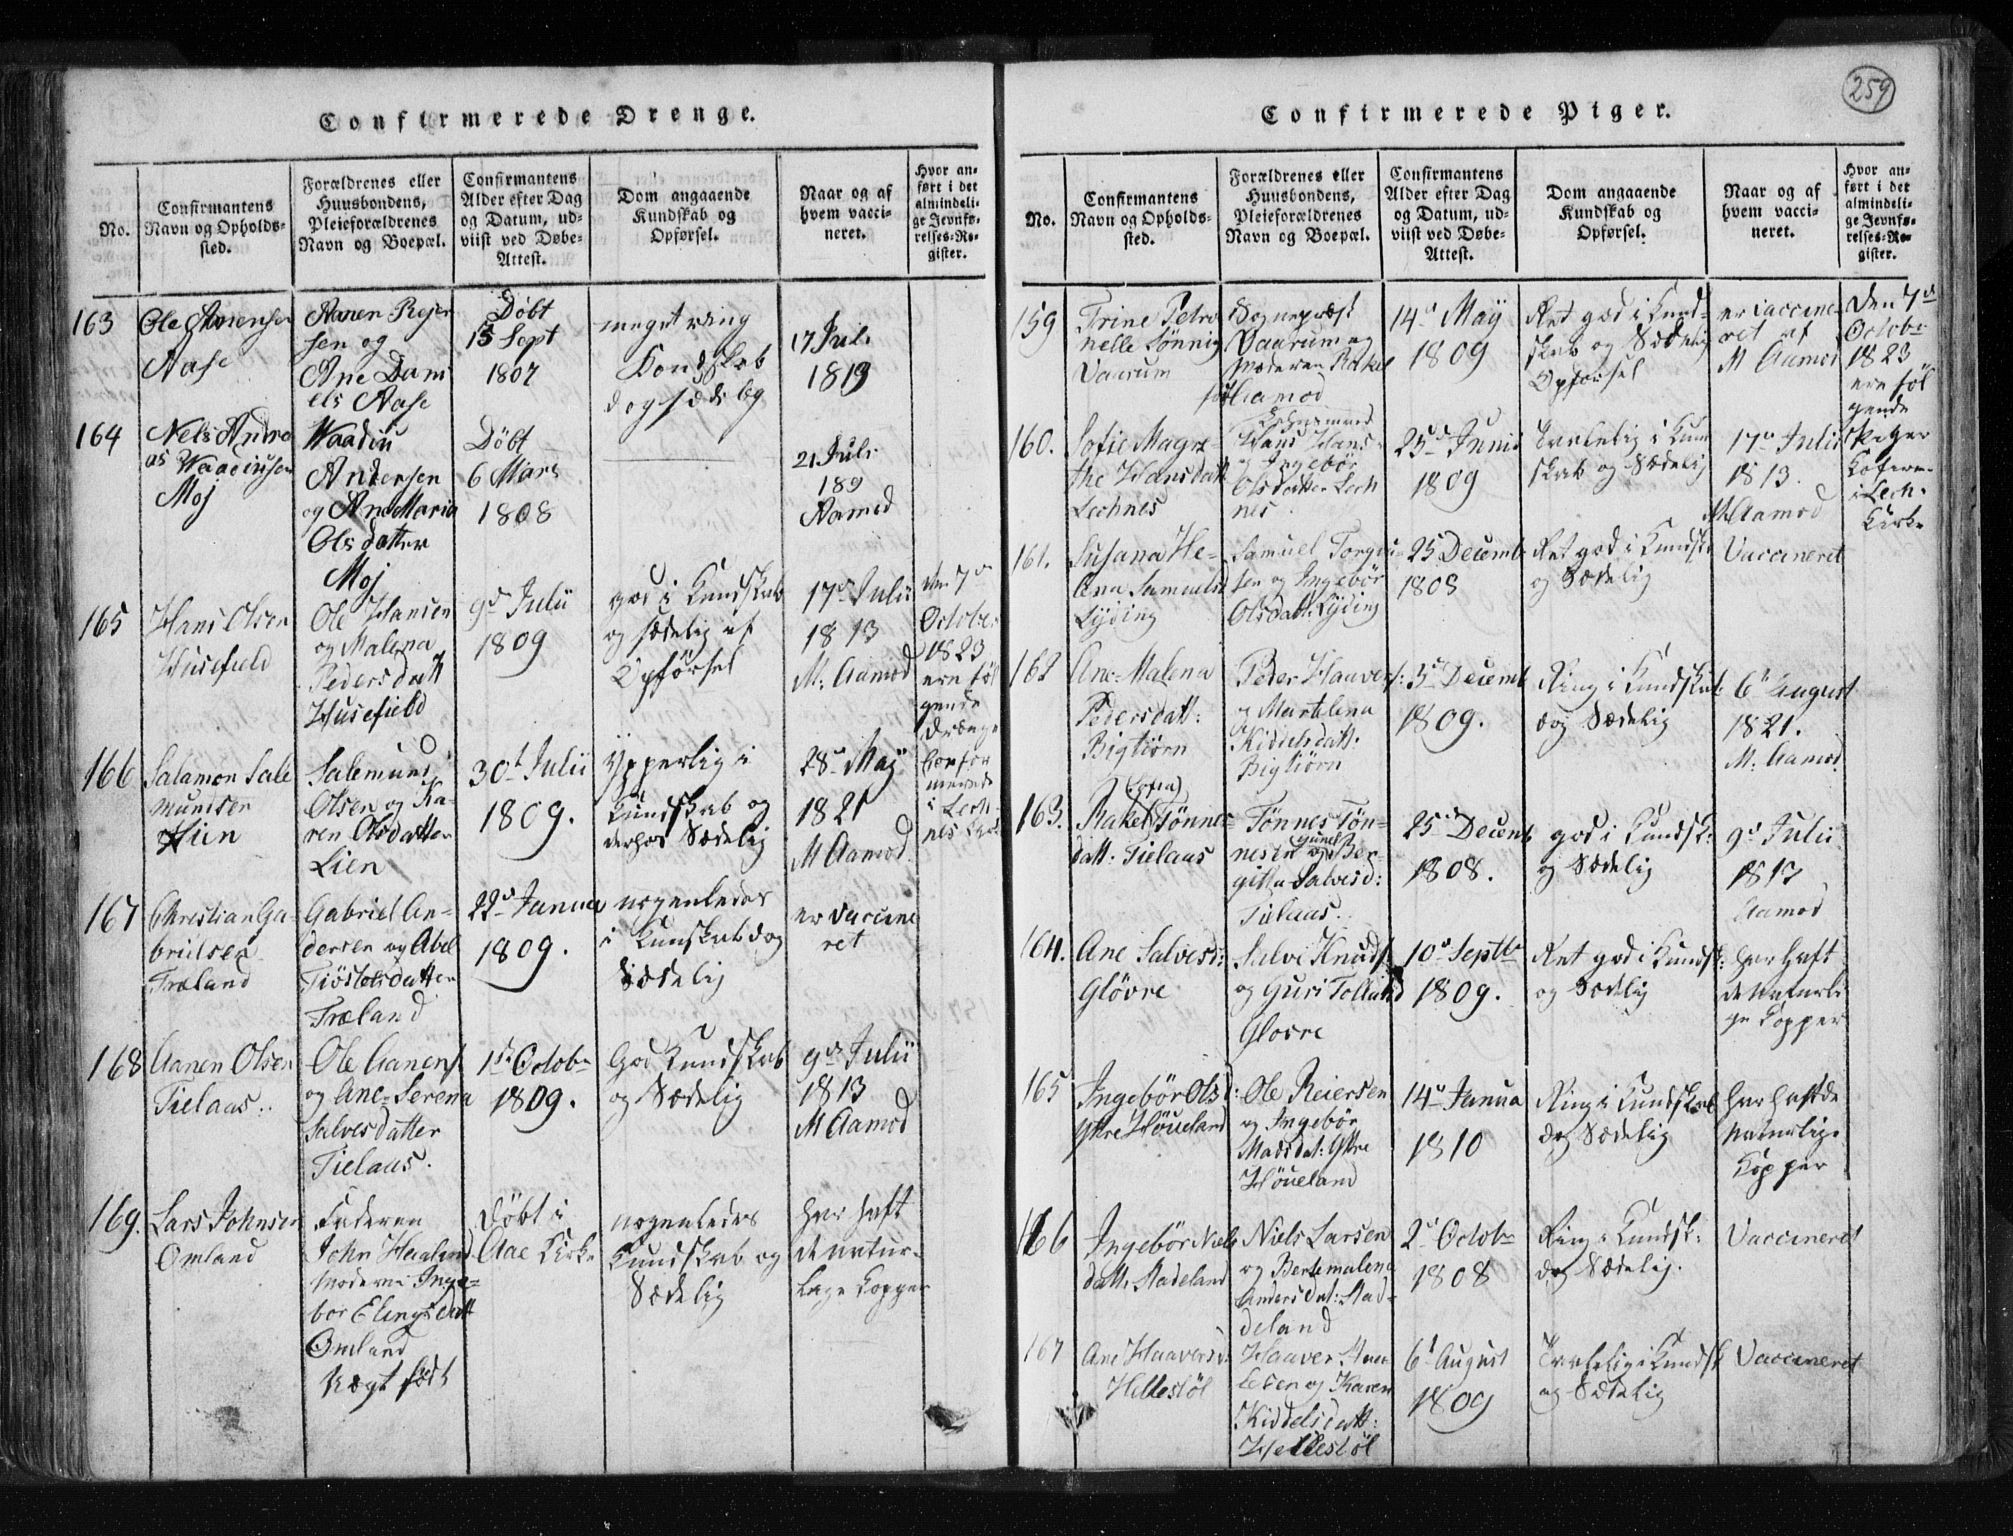 Confirmerede Drenge.
No.
Confirmantens
Navn og Opholds-
sted.
Forældrenes eller
Huusbondens,
Pleieforældrenes
Navn og Boepæl.
Confirmantens
Alder efter Dag
og Datum, ud-
viist ved Døbe-
Attest.
Dom angaaende
Kundskab og
Opførsel.
Naar og af
hvem vacci-
neret.
Hvor an-
ført i det
almindeli-
ge Jevnfø-
relses-Re-
gister.
163
Ole
Aase
Aanen Rejer
sen og
Ane Dani
els Aase
Døbt
Sept
1807
meget ring
Kondskab
dog
17 Juli
1819
164
Nels Andre
as
Moj
Waadiu
Andersen
og Ane Maria
Olsdatter
Moj
Døbt
6 Mars
1808
21 Juli
189
Aamod
165
Hans Olsen
Husefield
Ole Hansen
og Malena
Pedersdatt
Husefield
9d Julii
1809
god i Kundskab
og sædelig af
Opførsel
17d Julii
1813
M: Aamod
den 7de
October
1823
ere føl
gende
drænge
Confir
merede
i Lech-
nes
166
Salamon Sale
mundsen
Lien
Salemund
Olsen og Ka-
ren Olsdatter
Lien
30t Julii
1809.
Ypperlig i
Kundskab og
derhos Sædelig
28de May
1821
M Aamod.
167
Christian Ga-
brielsen
Træland
Gabriel An-
dersen og Abel
Tiöstelsdatter
Træland
22d Janua
1809.
nogenledes
i Kunskab dog
Sædelig
er vaccine
ret
168
Aanen Olsen
Tielaas.
Ole Aanens
og Ane Serena
Salvesdatter
Tielaas.
1ste Octobr
1809.
God Kundskab
og Sædelig
9de Julii
1813
M Aamod
169.
Lars Johnsen
Omland
Faderen
John
Moderen Inge-
bor Elingsdatt
Omland
Uægt født
døbt i
Aae Kirke
nogenledes
Kundskab og
Sædelig
har haft
de natur-
lige Kopper
259
Confirmerede Piger.
No.
Confirmantens
Navn og Opholds-
sted.
Forældrenes eller
Huusbondens,
Pleieforældrenes
Navn og Boepæl.
Confirmantens
Alder efter Dag
og Datum, ud-
viist ved Døbe-
Attest.
Dom angaaende
Kundskab og
Opførsel.
Naar og af
hvem vacci-
neret.
Hvor an-
ført i det
almindeli-
ge Jevnfø-
relses-Re-
gister.
159
Trine Petro
nelle Sønnig
Vaarum
Sognepræst
Vaarum og
Moderen Rakel
Aamod
14de May
1809
Ret god i Kund-
skab og Sædelig
Opførsel
er vaccine-
ret af
M Aamod
den 7de
Octobr
1823
ere føl
gende
Piger
i Lech-
Kirke
160.
Sofie Magre
the Hansdatt
Lechnes
Hans Hans
og Ingebör
Olsdatter Lech
nes
25de Junii
1809
Taalelig i Kun
skab og Sædelig
17de Julii
1813.
M. Aamod
161.
Susana He-
Ana Samuelsd
Lyding
Samuel Torgiu-
sen og Ingebör
Olsdatt: Lyding
25 Decemb
1808
Ret god i Kundsk
og Sædelig
Vaccineret
162
Ane Malena
Pedersdatt:
Bigtiörn
Peder Haavers:
og Martelina
Kiddelsdatt:
Bigtiörn
3de Decemb
1809.
Ring i Kundskab
dog Sædelig
6te August
1821.
M: Aamod.
163.
Rakel (Sofia) Tönnes
datt: Tielaas
Tönnes Tön-
nesen og Ber-
gitta Salvesd:
Tielaas.
25de Decemb
1808.
god i Kundsk:
og Sædelig
9d Julii
1817
Aamod
164.
Ane Salvesd:
Glövre
Salve Knuds
og Guri
Glovre
10de Septbr
1809.
Ret god i Kundsk:
og Sædelig
har haft
de naturli
ge Kopper
165
Ingebör Olsd:
Yttre Höueland
Ole Reiersen
og Ingebör
Madsdat: Yttre
Höueland
14de Janua
1810
Ring i Kundskab
dog Sædelig
har haft de
naturlige
Kopper
166
Ingebör Niels
datt. Stadeland
Niels Larsen
og Bertemalena
Andersdat: Stad-
deland
2de Octobr
1808
Ring i Kundsk:
dog Sædelig.
Vaccineret
167
Ane Haaversd:
Hellestöl
Haaver
og Karen
Kiddelsdatt:
Hellestöl
6d August
1809
Taalelig i Kundsk
og Sædelig
Vaccineret